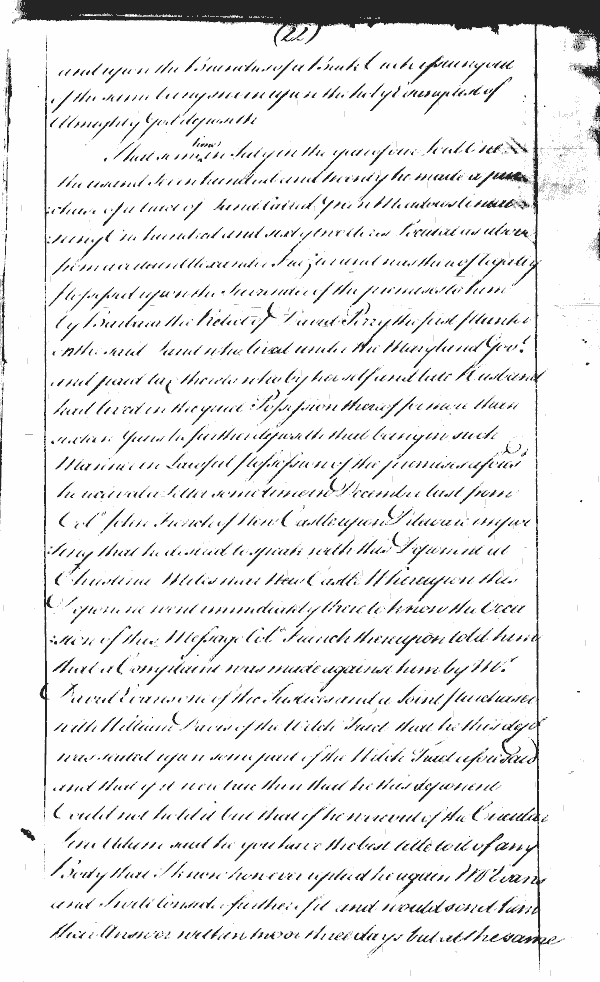 (22)
and upon the Branches of a Creek issuing out
of the same being sworn upon the holy Evangelist of
Almighty God deposeth
That some time in July in the year of our Lord One
thousand Seven hundred and twenty he made a pur
:chase of a tract of Land called Green Meadows
One hundred and sixty two Acres Located as above
from one Alexander and was then legally
possessed upon the Surrender of the premises to him
by Barbara the Relict of David Perry the first planter
on the said Land who lived under the Maryland Govt.
and paid tax thereto who by herself and late Husband
had lived in the quiet Possession thereof for more than
sixteen years he further deposeth that being in such
Manner in Lawful possession of the premises aforesd.
he received a Letter sometime in December last from
Colo. John French of New Castle upon Delaware impor
:ting that he desired to speak with this Deponent at
Christina Miles near New Castle Whereupon this
Deponent went immediately there to know the Occa
:sion of this Message Colo. French thereupon told him
that a Complaint was made against him by Mr.
David Evans one of the Justices and a Joint purchaser
with William Davis of the Welch Tract that he this dept.
was seated upon some part of the Welch Tract aforesaid
and that if it was true then that he this deponent
Could not hold it but that if he was out of the Circular
Line Adam said he you have the best title to it of any
Body that I know however replied he again Mr. Evans
and I will consider further of it and would send him
their Answer within two or three days but at the same